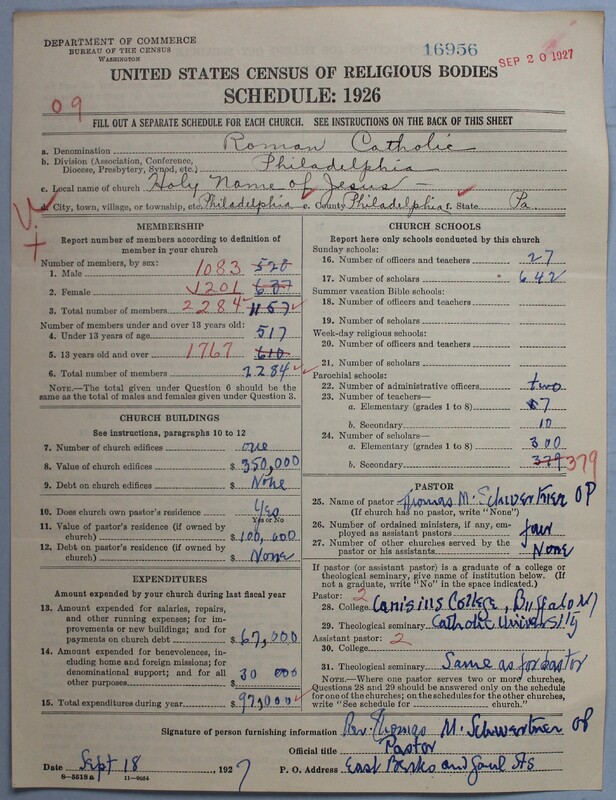 DEPARTMENT OF COMMERCE
BUREAU OF THE CENSUS
WASHINGTON
16956
SEP 20 1927
UNITED STATES CENSUS OF RELIGIOUS BODIES
SCHEDULE: 1926
09
FILL OUT A SEPARATE SCHEDULE FOR EACH CHURCH. SEE INSTRUCTIONS ON THE BACK OF THIS SHEET
a. Denomination Roman Catholic
b. Division (Association, Conference,
Diocese, Presbytery, Synod, etc.) Philadelphia
c. Local name of church Holy Name of Jesus
d. City, town, village, or township, etc. Philadelphia e. County Philadelphia f. State Pa.
MEMBERSHIP
Report number of members according to definition of
member in your church
Number of members, by sex:
1. Male 1083 520
2. Female 1201 637
3. Total number of members 2284 1157
Number of members under and over 13 years old:
4. Under 13 years of age 517
5. 13 years old and over 1767 610
6. Total number of members 2284
NOTE.—The total given under Question 6 should be the
same as the total of males and females given under Question 3.
CHURCH BUILDINGS
See instructions, paragraphs 10 to 12
7. Number of church edifices one
8. Value of church edifices $ 350,000
9. Debt on church edifices $ None
10. Does church own pastor's residence? Yes
Yes or No
11. Value of pastor's residence (if owned by
church) $ 100,000
12. Debt on pastor's residence (if owned by
church) $ None
EXPENDITURES
Amount expended by your church during last fiscal year
13. Amount expended for salaries, repairs,
and other running expenses; for im-
provements or new buildings; and for
payments on church debt $ 67,000
14. Amount expended for benevolences, in-
cluding home and foreign missions; for
denominational support; and for all
other purposes $ 30 000
15. Total expenditures during year $ 97,000
CHURCH SCHOOLS
Report here only schools conducted by this church
Sunday schools:
16. Number of officers and teachers 27
17. Number of scholars 642
Summer vacation Bible schools:
18. Number of officers and teachers
19. Number of scholars
Week-day religious schools:
20. Number of officers and teachers
21. Number of scholars
Parochial schools:
22. Number of administrative officers two
23. Number of teachers—
a. Elementary (grades 1 to 8) 7
b. Secondary 10
24. Number of scholars—
a. Elementary (grades 1 to 8) 300
b. Secondary 379 379
PASTOR
25. Name of pastor Thomas M. Schwertner OP
(If church has no pastor, write "None")
26. Number of ordained ministers, if any, em-
ployed as assistant pastors four
27. Number of other churches served by the
pastor or his assistants None
If pastor (or assistant pastor) is a graduate of a college or
theological seminary, give name of institution below. (If
not a graduate, write "No" in the space indicated.)
Pastor: 2
28. College Canisius College, Buffalo NY
29. Theological seminary Catholic University
Assistant pastor: 2
30. College
31. Theological seminary Same as for pastor
NOTE.—Where one pastor serves two or more churches,
Questions 28 and 29 should be answered only on the schedule
for one of the churches; on the schedules for the other churches,
write "See schedule for church."
Signature of person furnishing information Rev. Thomas M. Schwertner OP
Official title Pastor
Date Sept 18 1927 P. O. Address East Berks and Gaul Sts
8—5518a 11—9054